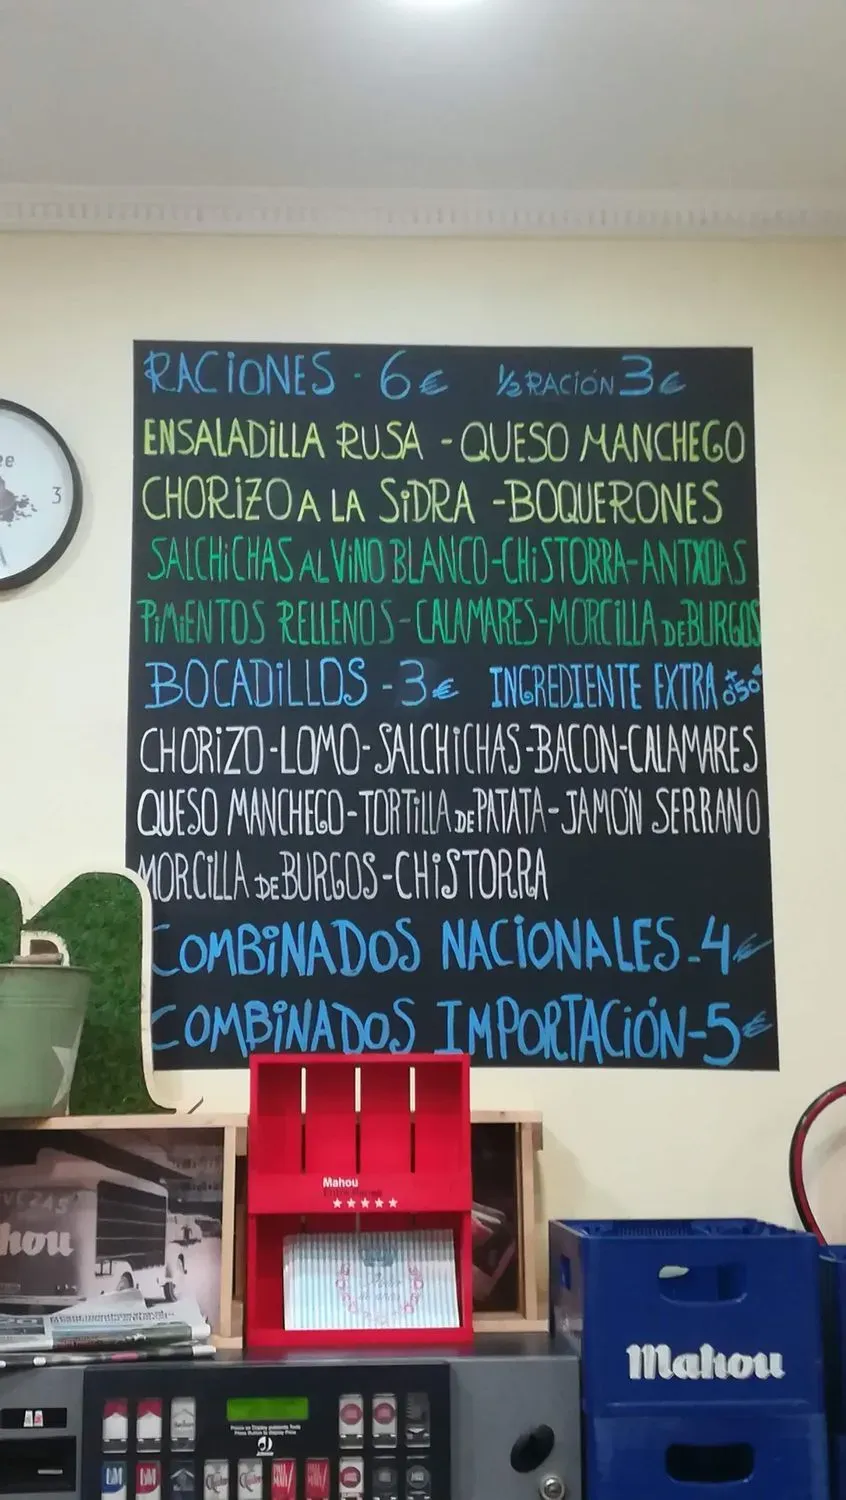 RACIONES - 6€ ½ RACIÓN 3€
ENSALADILLA RUSA - QUESO MANCHEGO
CHORIZO A LA SIDRA - BOQUERONES
SALCHICHAS AL VINO BLANCO - CHISTORRA - ANTXOAS
PIMIENTOS RELLENOS - CALAMARES - MORCILLA DE BURGOS
BOCADILLOS - 3€ INGREDIENTE EXTRA + 0'50€
CHORIZO - LOMO - SALCHICHAS - BACON - CALAMARES
QUESO MANCHEGO - TORTILLA DE PATATA - JAMÓN SERRANO
MORCILLA DE BURGOS - CHISTORRA
COMBINADOS NACIONALES - 4€
COMBINADOS IMPORTACIÓN - 5€
3
Mahou
★★★★★
hou
Mahou